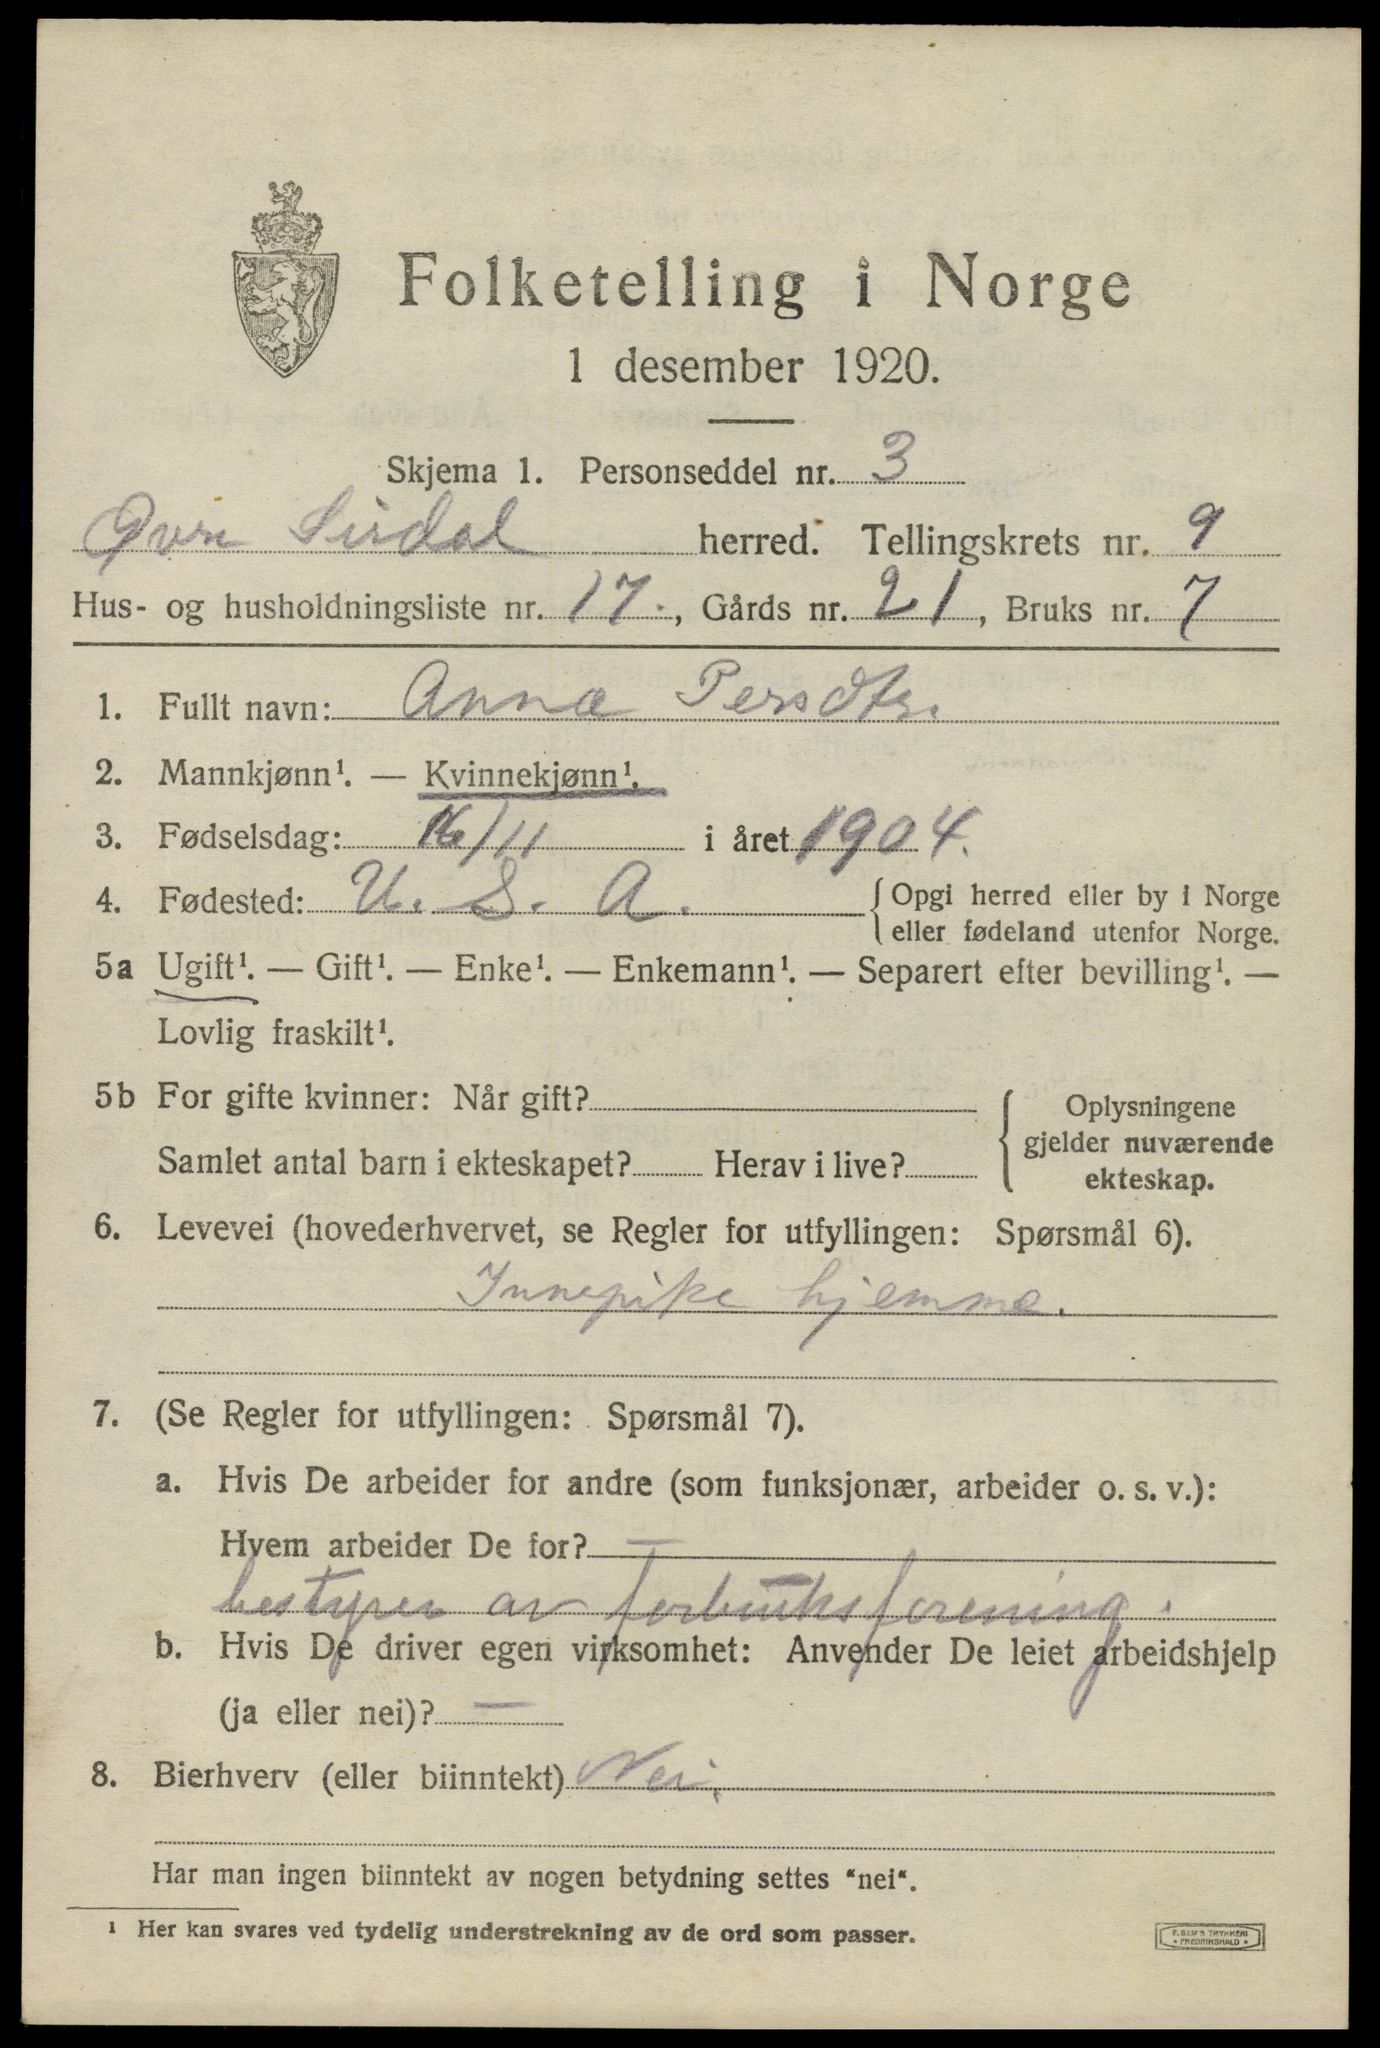 Folketelling i Norge
1 desember 1920.
Skjema 1. Personseddel nr. 3
Øvre Sirdal herred. Tellingskrets nr. 9
Hus- og husholdningsliste nr. 17., Gårds nr. 21, Bruks nr. 7
1. Fullt navn: Anna Persdtr.
2. Mannkjønn¹. — Kvinnekjønn¹.
3. Fødselsdag: 16/11 i året 1904.
4. Fødested: U. S. A. { Opgi herred eller by i Norge
eller fødeland utenfor Norge.
5a Ugift¹. — Gift¹. — Enke¹. — Enkemann¹. — Separert efter bevilling¹. —
Lovlig fraskilt¹.
5b For gifte kvinner: Når gift? { Oplysningene
gjelder nuværende
ekteskap.
Samlet antal barn i ekteskapet? Herav i live?
6. Levevei (hovederhvervet, se Regler for utfyllingen: Spørsmål 6).
Innepike hjemme.
7. (Se Regler for utfyllingen: Spørsmål 7).
a. Hvis De arbeider for andre (som funksjonær, arbeider o. s. v.):
Hvem arbeider De for? —
bestyrer av forbruksforening.
b. Hvis De driver egen virksomhet: Anvender De leiet arbeidshjelp
(ja eller nei)? —
8. Bierhverv (eller biinntekt) Nei.
Har man ingen biinntekt av nogen betydning settes "nei".
¹ Her kan svares ved tydelig understrekning av de ord som passer.
E. SEM'S TRYKKERI
FREDRIKSHALD